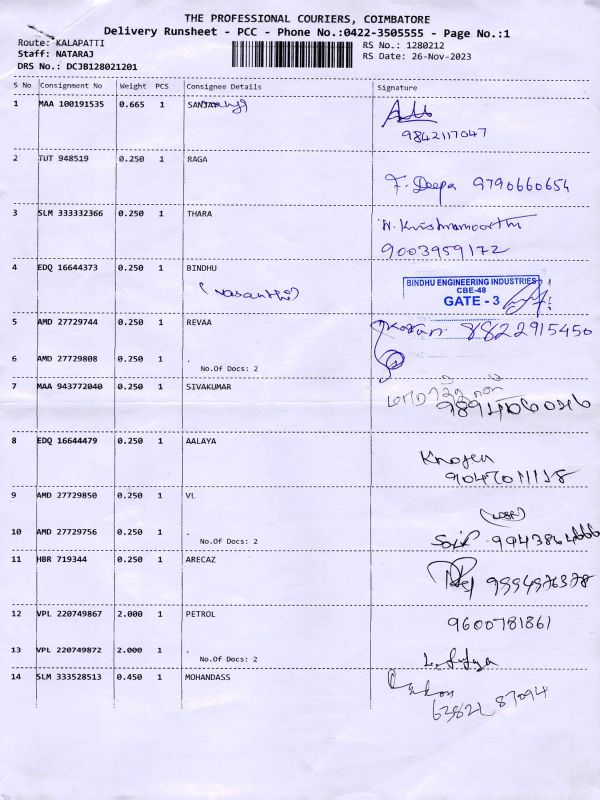 THE PROFESSIONAL COURIERS, COIMBATORE
Delivery Runsheet - PCC - Phone No.:0422-3505555 - Page No.:1
Route: KALAPATTI
Staff: NATARAJ
DRS No.: DCJB128021201
RS No.: 1280212
RS Date: 26-Nov-2023
S No Consignment No Weight PCS Consignee Details Signature
1 MAA 100191535 0.665 1
9842117047
2 TUT 948519 0.250 1 RAGA
F. Deepa 9790660654
3 SLM 333332366 0.250 1 THARA
N. Krishnamoorthi
9003959172
4 EDQ 16644373 0.250 1 BINDHU
(Vasanthi)
BINDHU ENGINEERING INDUSTRIES
CBE-48
GATE - 3
5 AMD 27729744 0.250 1 REVAA
8822915450
6 AMD 27729808 0.250 1 .
No.Of Docs: 2
7 MAA 943772040 0.250 1 SIVAKUMAR
8 EDQ 16644479 0.250 1 AALAYA
9047011118
9 AMD 27729850 0.250 1 VL
10 AMD 27729756 0.250 1 .
No.Of Docs: 2
11 HBR 719344 0.250 1 ARECAZ
9994976378
12 VPL 220749867 2.000 1 PETROL
9600781861
13 VPL 220749872 2.000 1 .
No.Of Docs: 2
14 SLM 333528513 0.450 1 MOHANDASS
63822 87094